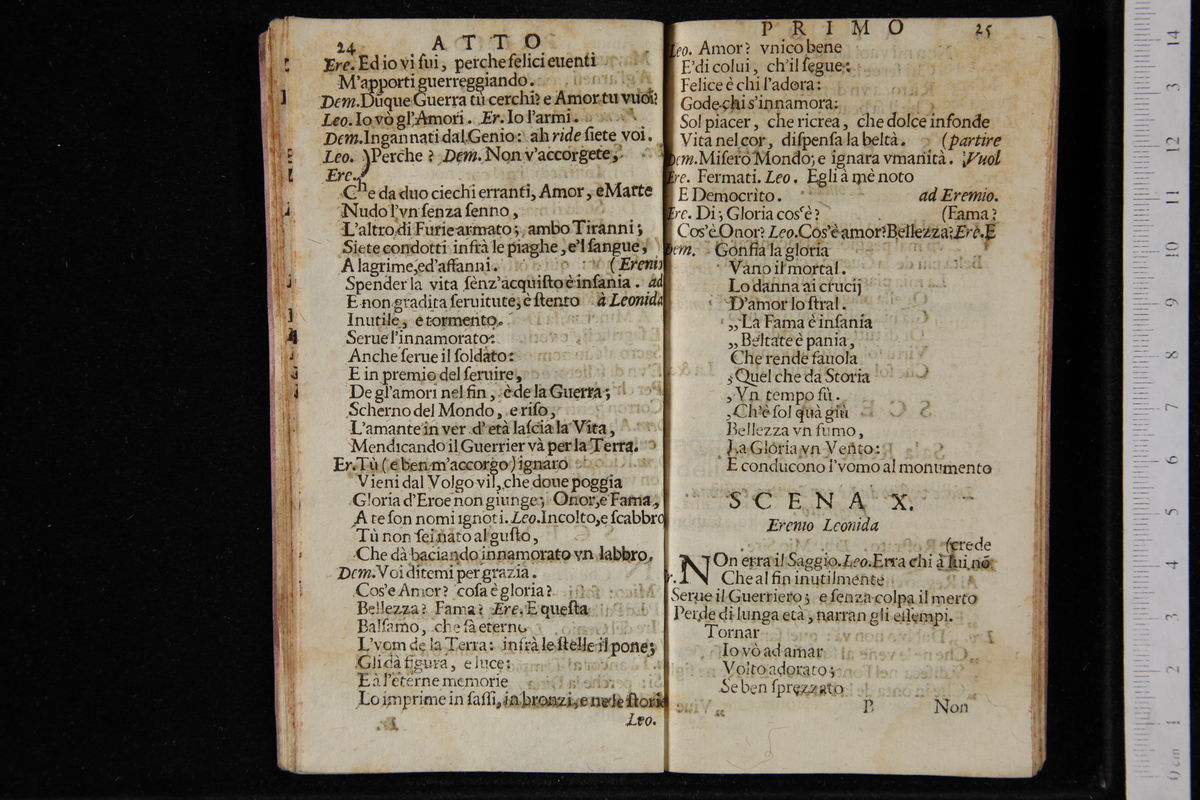 24 ATTO
Ere. Ed io vi fui, perche felici euenti
M'apporti guerreggiando.
Dem. Dūque Guerra tù cerchi? e Amor tu vuoi?
Leo. Io vò gl'Amori. Er. Io l'armi.
Dem. Ingannati dal Genio: ah ride siete voi.
Leo. ) Perche? Dem. Non v'accorgete,
Ere.
Che da duo ciechi erranti, Amor, e Marte
Nudo l'vn senza senno,
L'altro di Furie armato; ambo Tiranni;
Siete condotti infrà le piaghe, e'l sangue,
A lagrime, ed'affanni. (Erenio
Spender la vita senz'acquisto è insania. ad
E non gradita seruitute, e stento à Leonida
Inutile, e tormento.
Serue l'innamorato:
Anche serue il soldato:
E in premio del seruire,
De gl'amori nel fin, è de la Guerra;
Scherno del Mondo, e riso,
L'amante in ver d'età lascia la Vita,
Mendicando il Guerrier và per la Terra.
Er. Tù (e ben m'accorgo) ignaro
Vieni dal Volgo vil, che doue poggia
Gloria d'Eroe non giunge; Onor, e Fama,
A te son nomi ignoti. Leo. Incolto, e scabbro
Tù non sei nato al gusto,
Che dà baciando innamorato vn labbro.
Dem. Voi ditemi per grazia.
Cos'e Amor? cosa è gloria?
Bellezza? Fama? Ere. E questa
Balsamo, che fà eterno
L'vom de la Terra: infrà le stelle il pone;
Gli dà figura, e luce:
E à l'eterne memorie
Lo imprime in sassi, in bronzi, e ne le storie
Leo.
PRIMO 25
Leo. Amor? vnico bene
E' di colui, ch'il segue:
Felice è chi l'adora:
Gode chi s'innamora:
Sol piacer, che ricrea, che dolce infonde
Vita nel cor, dispensa la beltà. (partire
Dem. Misero Mondo; e ignara vmanità. Vuol
Ere. Fermati. Leo. Egli à mè noto
E Democrìto. ad Eremio.
Ere. Di; Gloria cos'è? (Fama?
Cos'è Onor? Leo. Cos'è amor? Bellezza? Ere. E
Dem. Gonfia la gloria
Vano il mortal.
Lo danna ai crucij
D'amor lo stral.
„La Fama è insania
„Beltate è pania,
Che rende fauola
,Quel che da Storia
,Vn tempo fù.
,Ch'è sol quà giù
Bellezza vn fumo,
La Gloria vn Vento:
E conducono l'vomo al monumento
SCENA X.
Erenio Leonida
(crede
r. NOn erra il Saggio. Leo. Erra chi à lui nō
Che al fin inutilmente
Serue il Guerriero; e senza colpa il merto
Perde di lunga età, narran gli essempi.
Tornar
Io vò ad amar
Volto adorato;
Se ben sprezzato
B Non